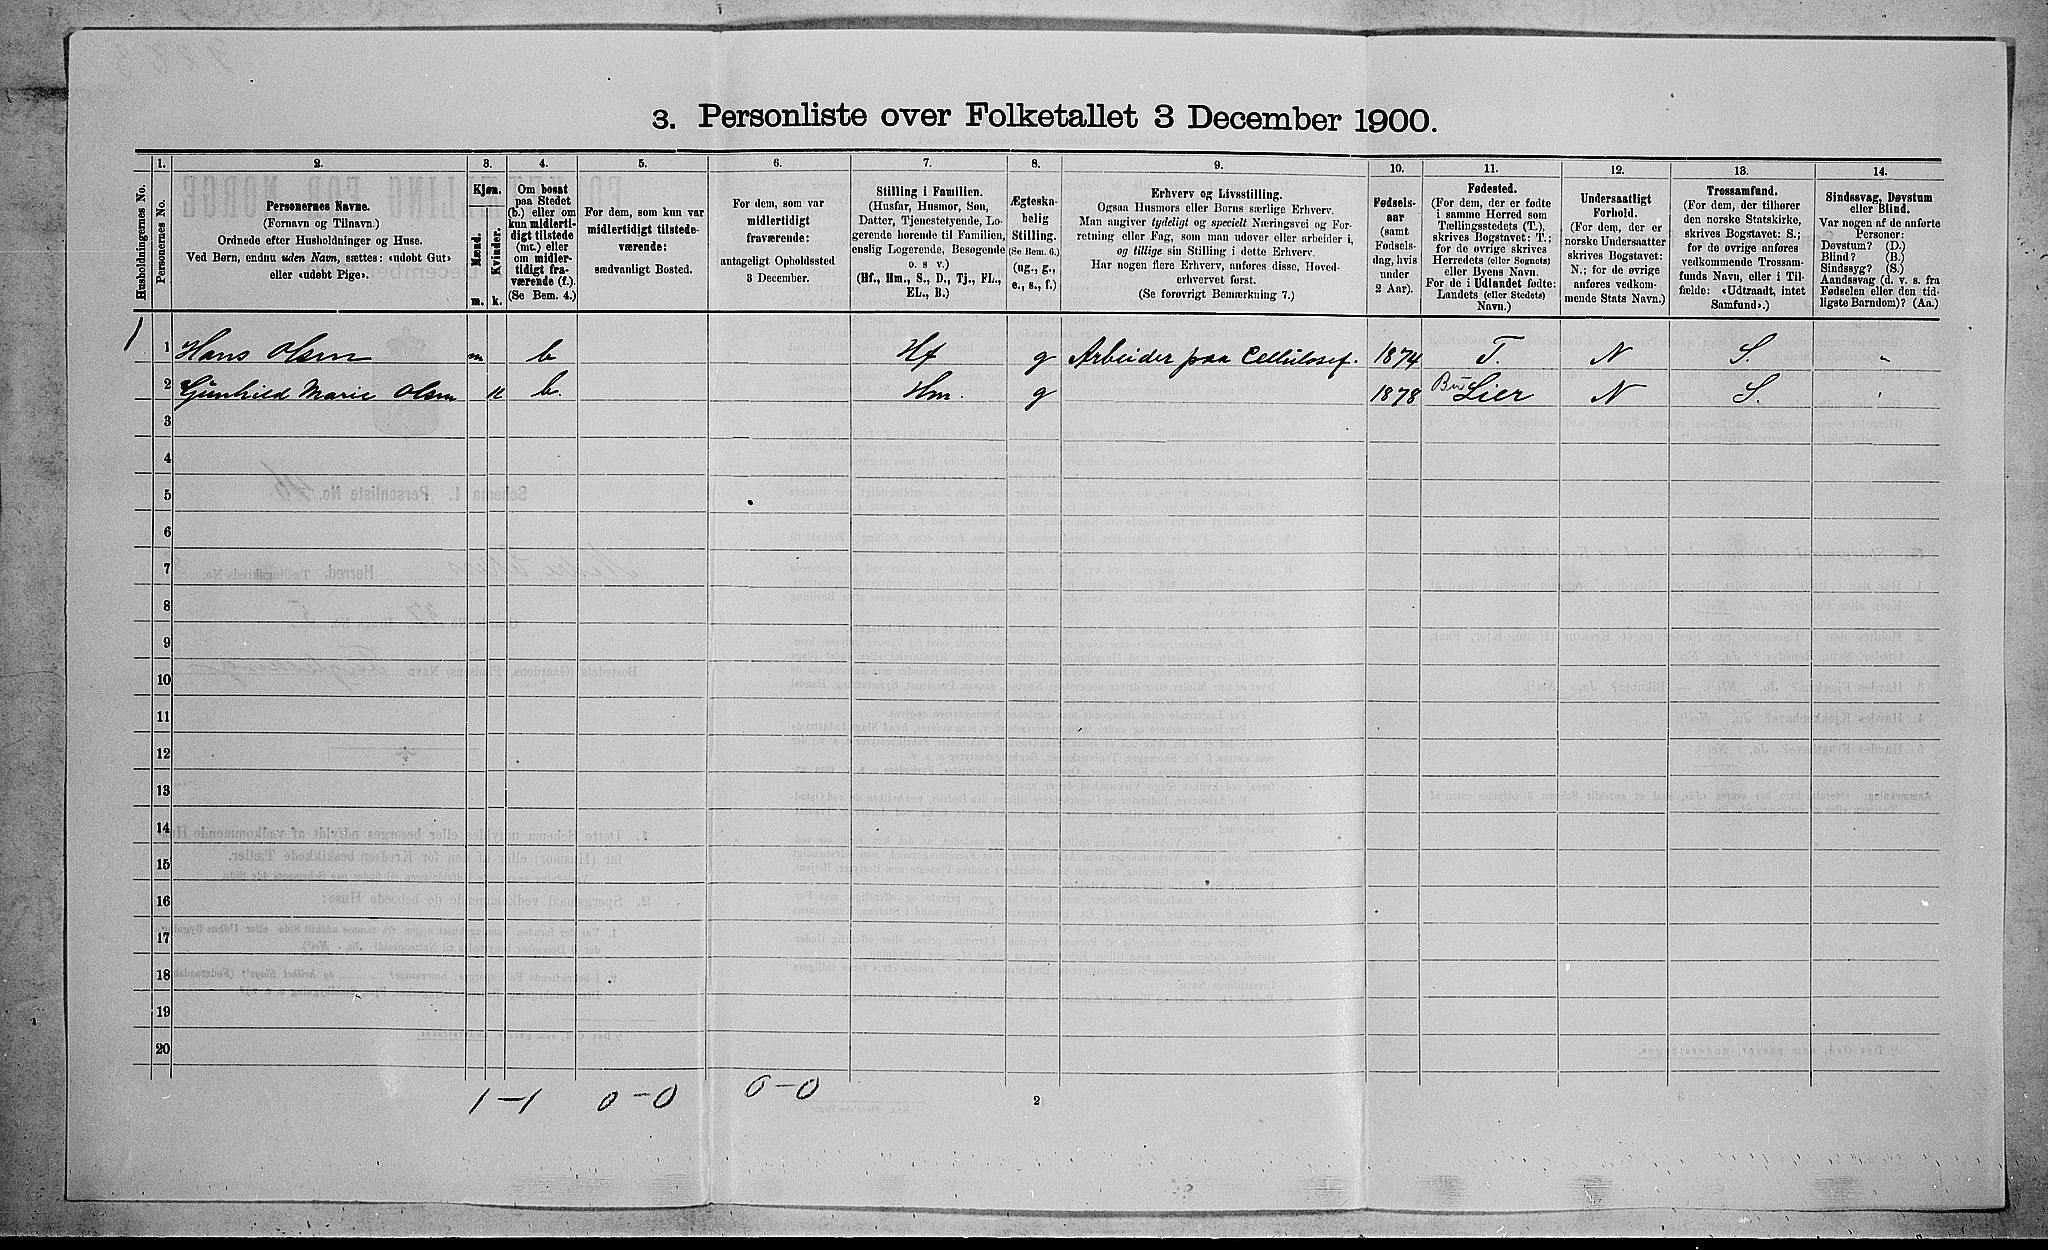 3. Personliste over Folketallet 3 December 1900.
1. 2. 3. 4. 5. 6. 7. 8. 9. 10. 11. 12. 13. 14.
Husholdningernes No.
Personernes No.
Personernes Navne.
(Fornavn og Tilnavn.)
Ordnede efter Husholdninger og Huse.
Ved Børn, endnu uden Navn, sættes: «udøbt Gut»
eller «udøbt Pige».
Kjøn.
Mænd.
Kvinder.
m. k.
Om bosat
paa Stedet
(b.) eller om
kun midlerti-
digt tilstede
(mt.) eller
om midler-
tidigt fra-
værende (f.).
(Se Bem. 4.)
For dem, som kun var
midlertidigt tilstede-
værende:
sædvanligt Bosted.
For dem, som var
midlertidigt
fraværende:
antageligt Opholdssted
3 December.
Stilling i Familien.
(Husfar, Husmor, Søn,
Datter, Tjenestetyende, Lo-
gerende hørende til Familien,
enslig Logerende, Besøgende
o. s v.)
(Hf., Hm., S., D., Tj., FL.,
EL., B.)
Ægteska-
belig
Stilling.
(Se Bem. 6.)
(ug., g.,
e., s., f.)
Erhverv og Livsstilling.
Ogsaa Husmors eller Børns særlige Erhverv.
Man angiver tydeligt og specielt Næringsvei og For-
retning eller Fag, som man udøver eller arbeider i,
og tillige sin Stilling i dette Erhverv.
Har nogen flere Erhverv, anføres disse, Hoved-
erhvervet først.
(Se forøvrigt Bemærkning 7.)
Fødsels-
aar
(samt
Fødsels-
dag, hvis
under
2 Aar).
Fødested.
(For dem, der er fødte
i samme Herred som
Tællingsstedets (T.),
skrives Bogstavet: T.;
for de øvrige skrives
Herredets (eller Sognets)
eller Byens Navn.
For de i Udlandet fødte:
Landets (eller Stedets)
Navn.)
Undersaatligt
Forhold.
(For dem, der er
norske Undersaatter
skrives Bogstavet:
N.; for de øvrige
anføres vedkom-
mende Stats Navn.)
Trossamfund.
(For dem, der tilhører
den norske Statskirke,
skrives Bogstavet: S.;
for de øvrige anføres
vedkommende Trossam-
funds Navn, eller i Til-
fælde: «Udtraadt, intet
Samfund».)
Sindssvag, Døvstum
eller Blind.
Var nogen af de anførte
Personer:
Døvstum? (D.)
Blind? (B.)
Sindssyg? (S.)
Aandssvag (d. v. s. fra
Fødselen eller den tid-
ligste Barndom)? (Aa.)
1 1 Hans Olsen m b Hf g Arbeider paa Cellulosef. 1874 T. N S. "
2 Gunhild Marie Olsen k b. Hm. g 1878 Lier N S. "
3
4
5
6
7
8
9
10
11
12
13
14
15
16
17
18
19
20
1 – 1 0 – 0 0 – 0
2